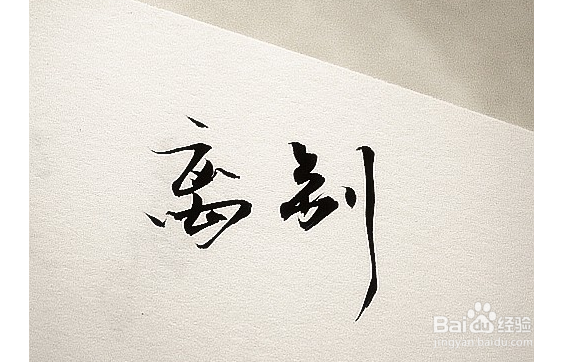 离别
Baidu 经验
jingyan.baidu.com